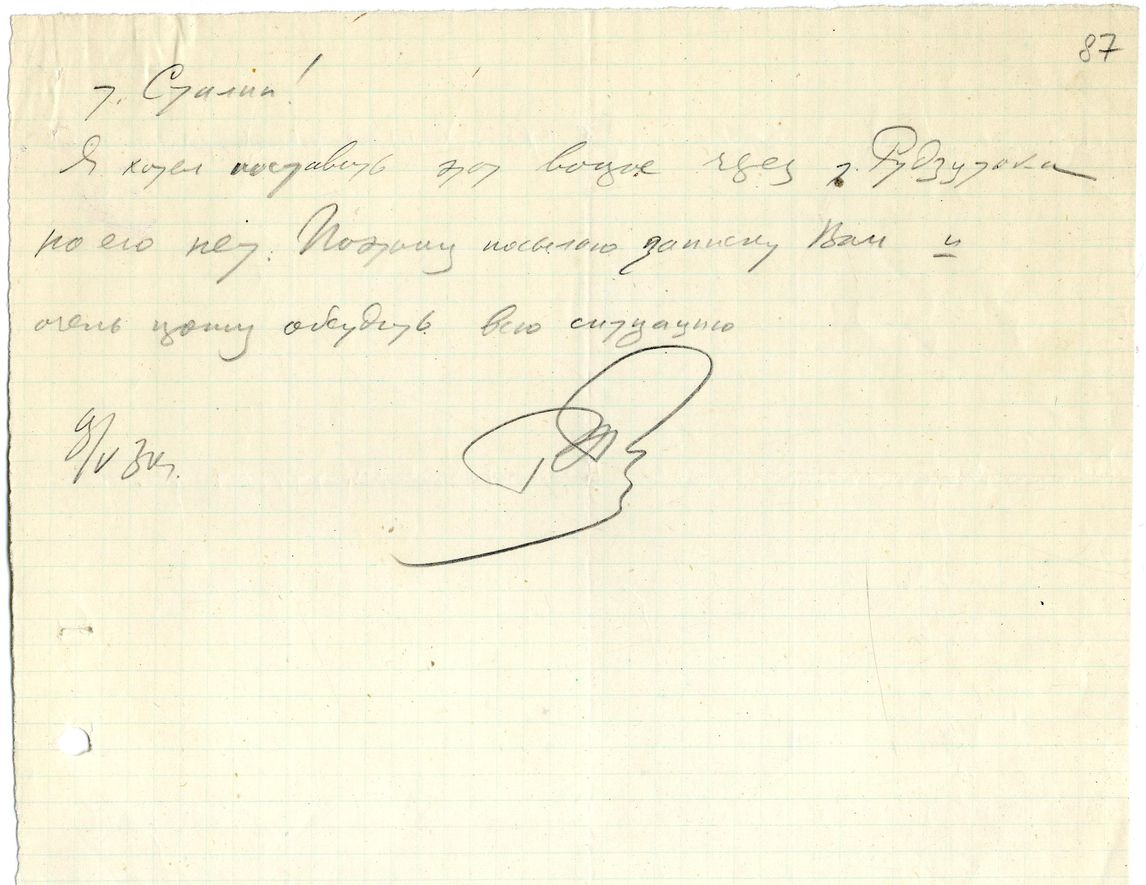 87
т. Сталин!
Я хотел поставить этот вопрос через т. Рудзутака
но его нет. Поэтому посылаю записку Вам и
очень прошу обсудить всю ситуацию